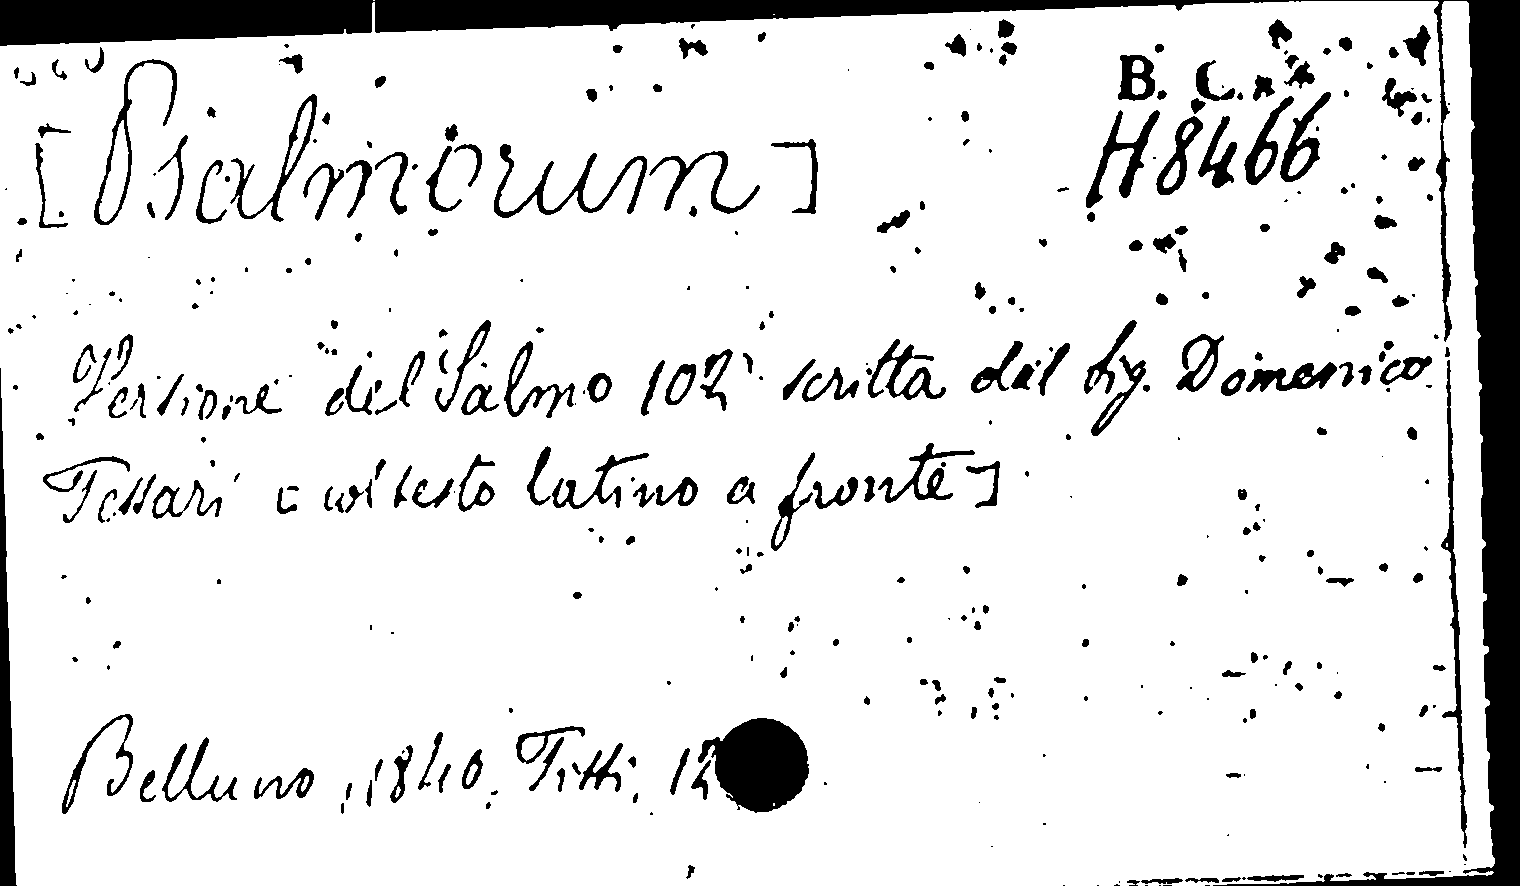 B. C.
H8466
[Psalmorum]
Versione del Salmo 102 scritta dal Sig. Domenico
Tessari [col testo latino a fronte]
Belluno, 1840, Titti, 12